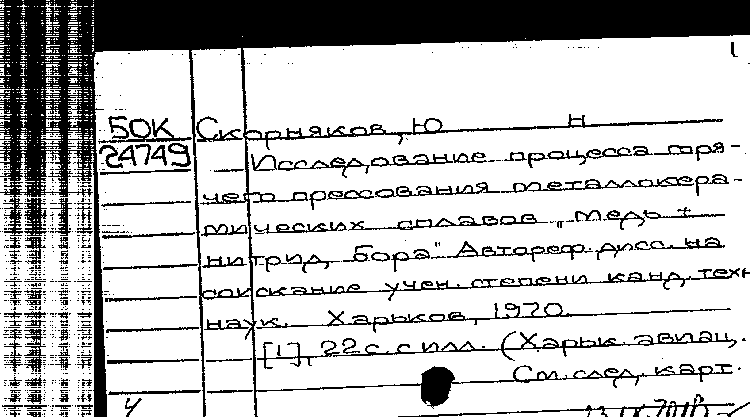 БОК Скорняков, Ю Н
24749 Исследование процесса горя-
чего прессования металлокера-
мических сплавов „медь +
нитрид бора" Автореф. дисс. на
соискание учен. степени канд. техн
наук. Харьков, 1970.
[1], 22 с. с илл. (Харьк. авиац.
См. след. карт.
4